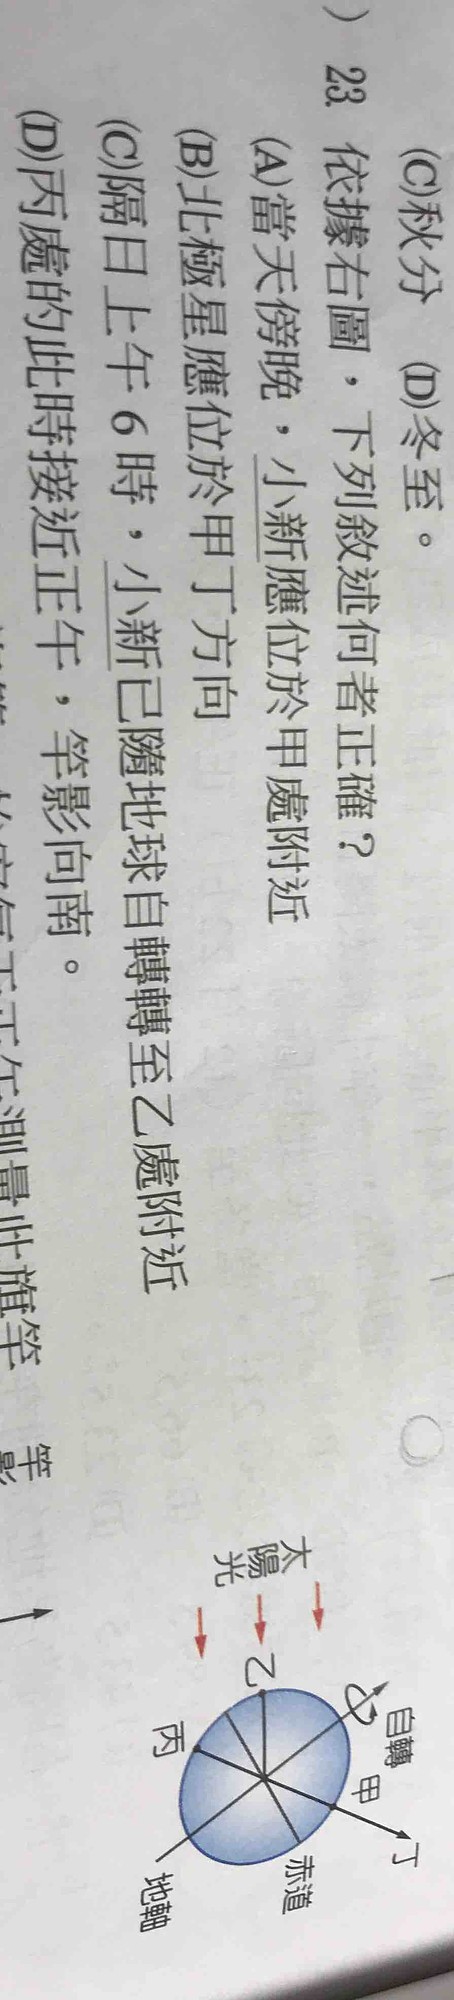 (C)秋分 (D)冬至。
) 23. 依據右圖，下列敘述何者正確？
(A)當天傍晚，小新應位於甲處附近
(B)北極星應位於甲丁方向
(C)隔日上午6時，小新已隨地球自轉轉至乙處附近
(D)丙處的此時接近正午，竿影向南。
正午測量此旗竿
竿影
太陽光
自轉
甲
丁
乙
丙
赤道
地軸